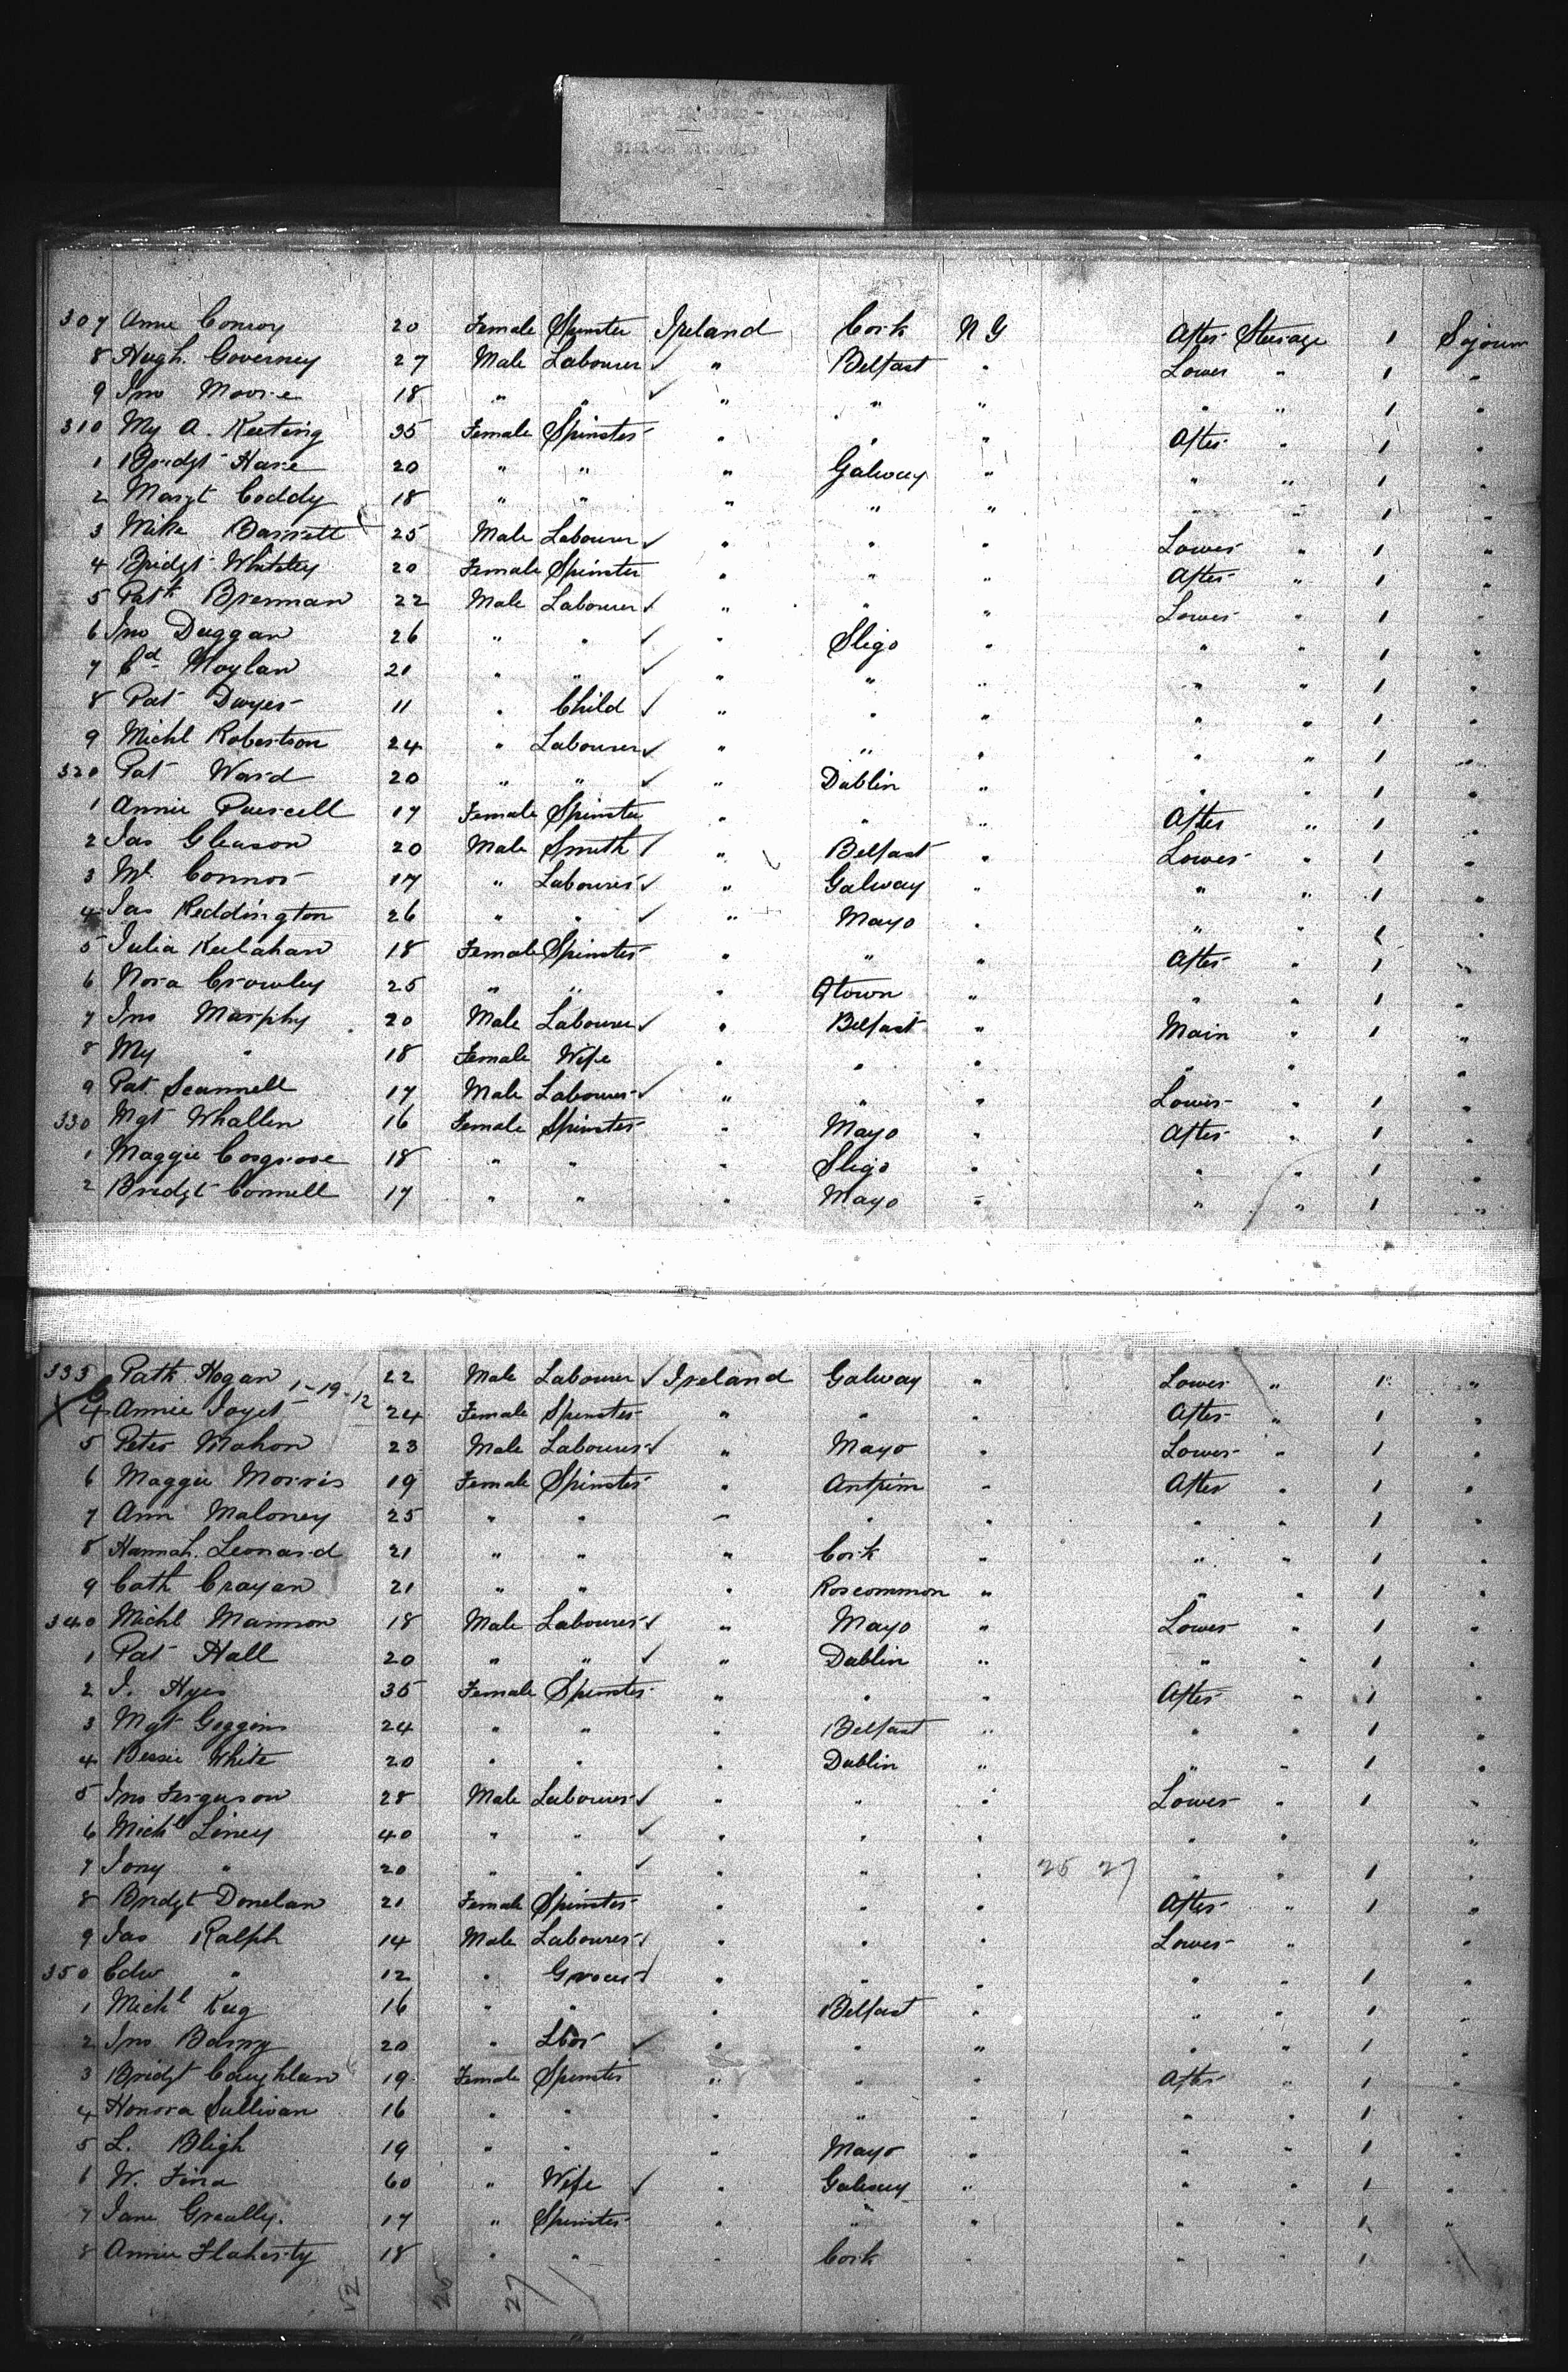 307 Annie Conroy 20 Female Spinster Ireland Cork N Y After Steerage 1 Sojourn
8 Hugh Governey 27 Male Labourer ✓ " Belfast " Lower " 1 "
9 Jno Moore 18 " " ✓ " " " " " 1 "
310 My A. Keeting 35 Female Spinster " " " After " 1 "
1 Bridgt Hare 20 " " " Galway " " " 1 "
2 Margt Coddy 18 " " " " " " " 1 "
3 Mike Barrett 25 Male Labourer ✓ " " " Lower " 1 "
4 Bridgt Whiteley 20 Female Spinster " " " After " 1 "
5 Patk Brennan 22 Male Labourer ✓ " " " Lower " 1 "
6 Jno Duggan 26 " " ✓ " Sligo " " " 1 "
7 Ed Moylan 21 " " ✓ " " " " " 1 "
8 Pat Dwyer 11 " Child ✓ " " " " " 1 "
9 Michl Robertson 24 " Labourer ✓ " " " " " 1 "
320 Pat Ward 20 " " ✓ " Dublin " " " 1 "
1 Annie Purcell 17 Female Spinster " " " After " 1 "
2 Jas Gleason 20 Male Smith ✓ " Belfast " Lower " 1 "
3 Mt Connor 17 " Labourer ✓ " Galway " " " 1 "
4 Jas Reddington 26 " " ✓ " Mayo " " " 1 "
5 Julia Keelahan 18 Female Spinster " " " After " 1 "
6 Nora Crowley 25 " " " Qtown " " " 1 "
7 Jno Murphy 20 Male Labourer ✓ " Belfast " Main " 1 "
8 My " 18 Female Wife " " " " " "
9 Pat Scannell 17 Male Labourer ✓ " " " Lower " 1 "
330 Mgt Whallen 16 Female Spinster " Mayo " After " 1 "
1 Maggie Cosgrove 18 " " " Sligo " " " 1 "
2 Bridgt Connell 17 " " " Mayo " " " 1 "
333 Patk Hogan 22 Male Labourer ✓ Ireland Galway " Lower " 1 "
1-19-12
X 4 Annie 24 Female Spinster " " " After " 1 "
5 Peter Mahon 23 Male Labourer ✓ " Mayo " Lower " 1 "
6 Maggie Morris 19 Female Spinster " Antrim " After " 1 "
7 Ann Maloney 25 " " " " " " " 1 "
8 Hannah Leonard 21 " " " Cork " " " 1 "
9 Cath Crayan 21 " " " Roscommon " " " 1 "
340 Michl Mannion 18 Male Labourer ✓ " Mayo " Lower " 1 "
1 Pat Hall 20 " " ✓ " Dublin " " " 1 "
2 J. Hyes 35 Female Spinster " " " After " 1 "
3 Mgt Goggins 24 " " " Belfast " " " 1 "
4 Bessie White 20 " " " Dublin " " " 1 "
5 Jno Ferguson 28 Male Labourer ✓ " " " Lower " 1 "
6 Michl Liney 40 " " ✓ " " " " " "
7 Jony " 20 " " ✓ " " " 25 27 " " 1 "
8 Bridgt Donelan 21 Female Spinster " " " After " 1 "
9 Jas Ralph 14 Male Labourer ✓ " " " Lower " "
350 Edw " 12 " Grocer ✓ " " " " " 1 "
1 Michl 16 " " " Belfast " " " 1 "
2 Jno Barry 20 " Lbor ✓ " " " " " 1 "
3 Bridgt Coughlan 19 Female Spinster " " " After " 1 "
4 Honora Sullivan 16 " " " " " " " 1 "
5 L. Bligh 19 " " " Mayo " " " 1 "
6 W. Fina 60 " Wife ✓ " Galway " " " 1 "
7 Jane Greally. 17 " Spinster " " " " " 1 "
8 Annie Flaherty 18 " " " Cork " " " 1 "
52 25 27